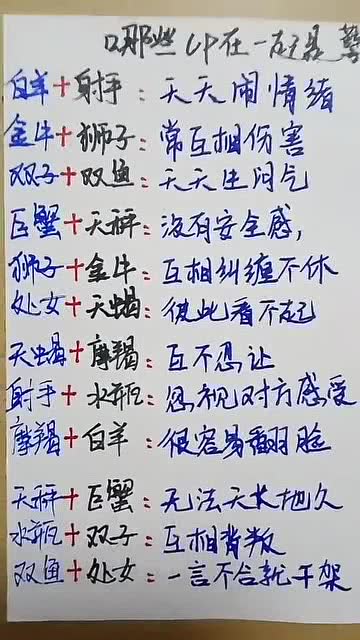 哪些CP在一起是
白羊+射手：天天闹情绪
金牛+狮子：常互相伤害
双子+双鱼：天天生闷气
巨蟹+天秤：没有安全感，
狮子+金牛：互相纠缠不休
处女+天蝎：彼此看不起
天蝎+摩羯：互不忍让
射手+水瓶：忽视对方感受
摩羯+白羊：很容易翻脸
天秤+巨蟹：无法天长地久
水瓶+双子：互相背叛
双鱼+处女：一言不合就干架